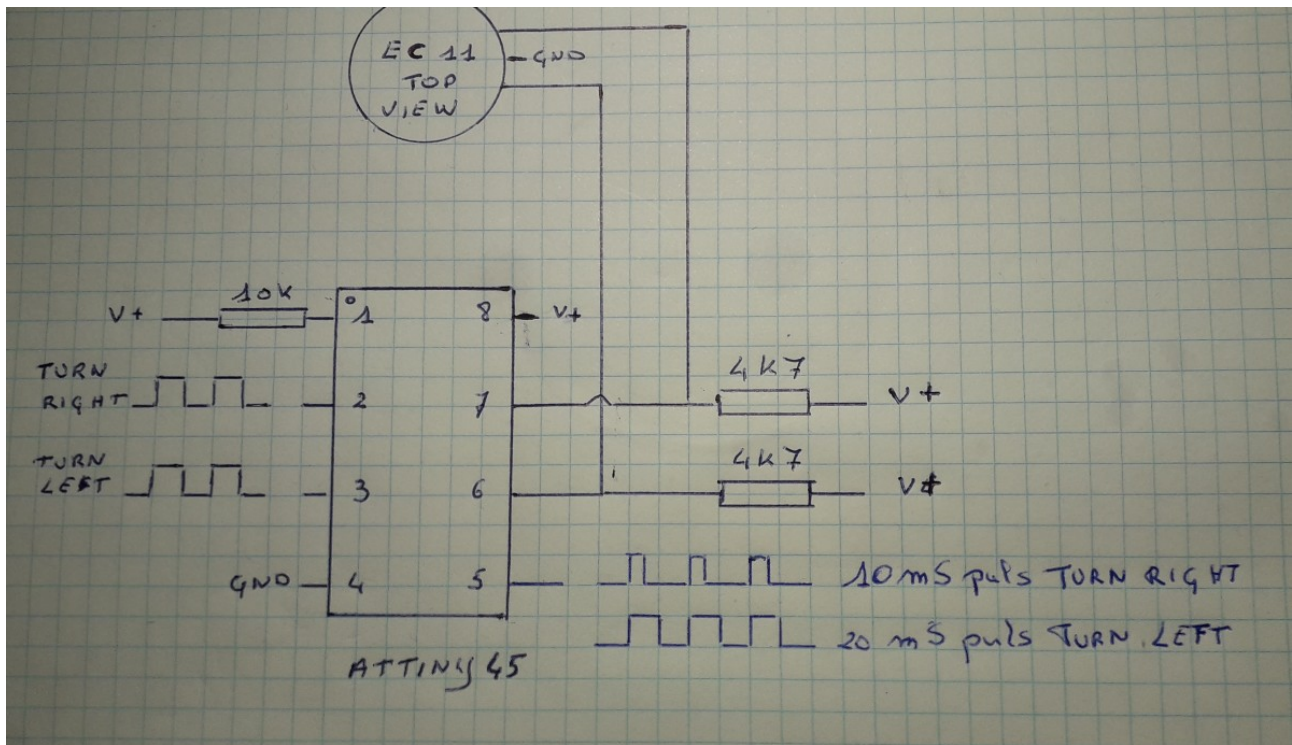 EC 11
TOP
VIEW
GND
10K
V+
1
8
V+
TURN
RIGHT
2
7
4K7
V+
TURN
LEFT
3
6
4K7
V+
GND
4
5
10 mS puls TURN RIGHT
20 mS puls TURN LEFT
ATTINY 45